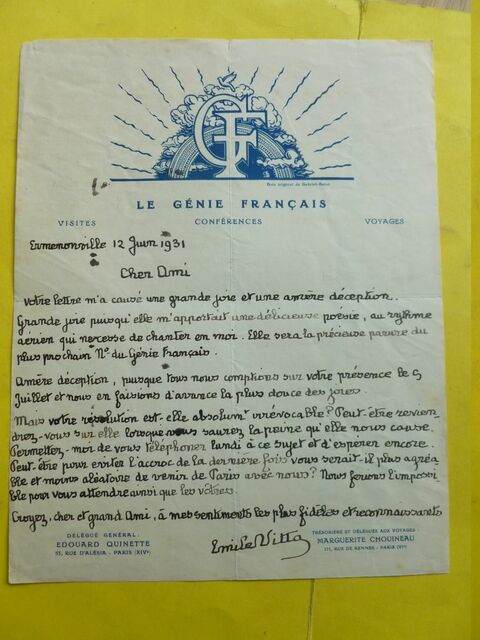 GF
Bois original de Gabriel-Belot
LE GÉNIE FRANÇAIS
VISITES CONFÉRENCES VOYAGES
Ermenonville 12 Juin 1931
Cher Ami
Votre lettre m'a causé une grande joie et une amère déception.
Grande joie puisqu'elle m'apportait une délicieuse poésie, au rythme
aérien qui ne cesse de chanter en moi. Elle sera la précieuse parure du
plus prochain N° du Génie Français.
Amère déception, puisque tous nous comptions sur votre présence le 5
Juillet et nous en faisions d'avance la plus douce des joies.
Mais votre résolution est-elle absolumt irrévocable? Peut-être revien
drez-vous sur elle lorsque vous saurez la peine qu'elle nous cause.
Permettez-moi de vous téléphoner lundi à ce sujet et d'espérer encore.
Peut-être pour éviter l'accroc de la dernière fois vous serait-il plus agréa
ble et moins aléatoire de venir de Paris avec nous? Nous ferions l'impossi
ble pour vous attendre ainsi que les vôtres.
Croyez, cher et grand Ami, à mes sentiments les plus fidèles et reconnaissants
Emile Villa
DÉLÉGUÉ GÉNÉRAL:
EDOUARD QUINETTE
55, RUE D'ALÉSIA - PARIS (XIVe)
TRÉSORIÈRE ET DÉLÉGUÉE AUX VOYAGES:
MARGUERITE CHOUINEAU
111, RUE DE RENNES - PARIS (VIe)